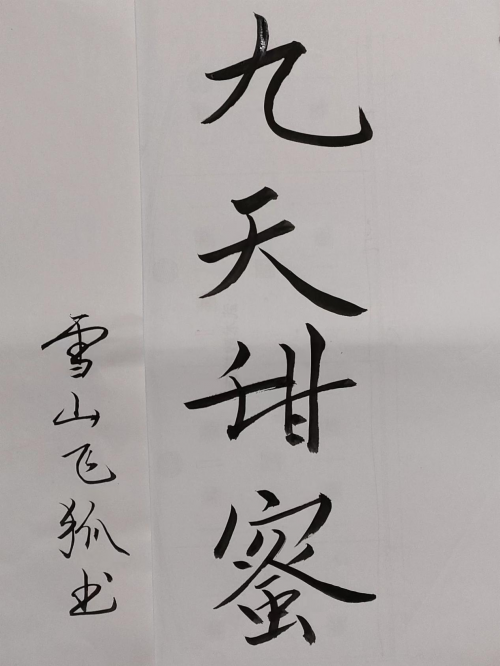 九天甜蜜
雪山飞狐书